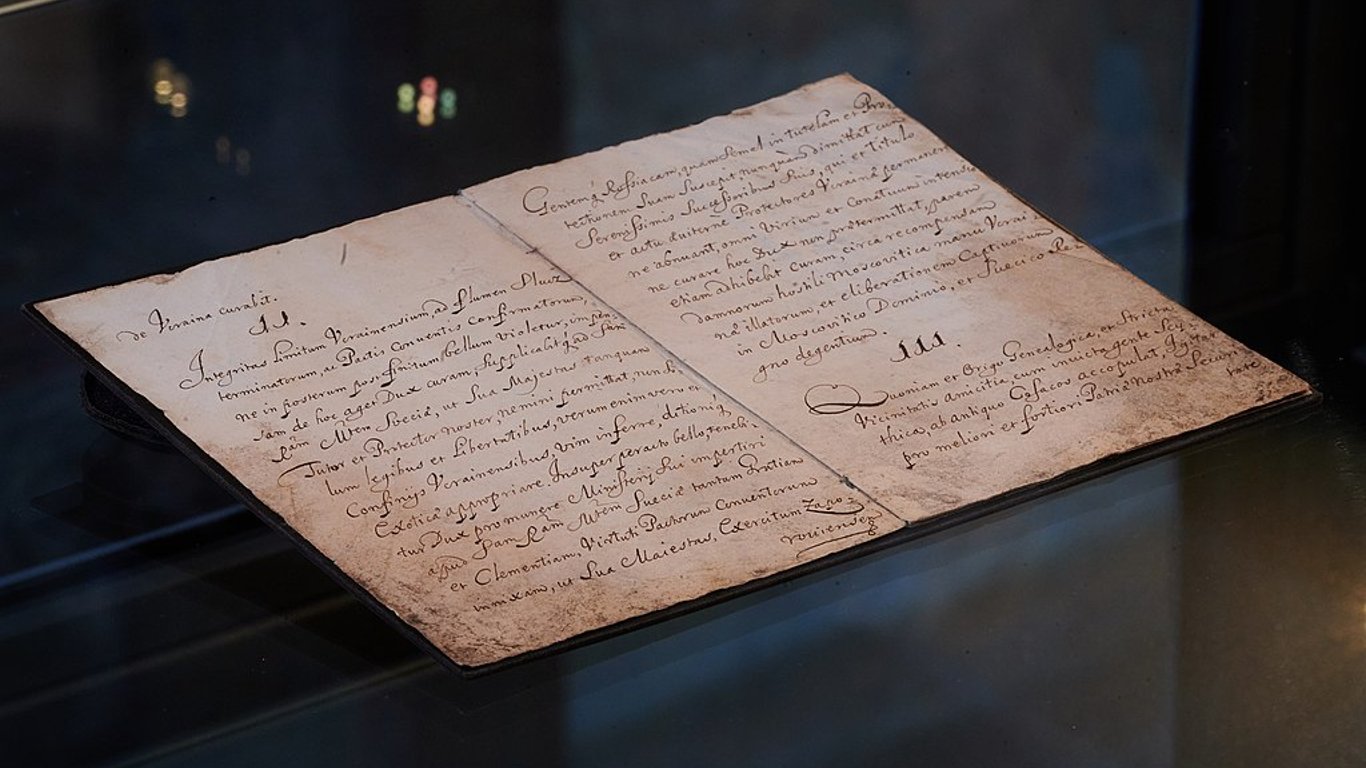 de Ucraina curabit.
II.
Integritas limitum Ucrainensium, ad flumen Slucz
terminatorum, ac Pactis conventis confirmatorum,
ne in posterum post finitum bellum violetur, impen-
sam de hoc aget Dux curam, supplicabit q́;
Mtem Sveciæ, ut Sua Majestas tanquam
Tutor et Protector noster, nemini permittat, non so-
lum legibus et Libertatibus, verum enim vero et
Confinijs Ucrainensibus, vim inferre, ditioniq́;
Exoticæ appropriare. Insuper peracto bello, teneb-
tur Dux pro munere Ministerij sui impertiri
apud Sam Ram Mtem Sueciæ tantam Gratiam
et Clementiam, Virtuti Pactorum Conventorum
innixam, ut Sua Maiestas, Exercitum Zapo-
roviensem
Gentem q́; Rossiacam, quam semel in tutelam et Pro-
tectionem Suam suscepit nunquam dimittat cum
Serenissimis Successoribus Suis, qui et titulo
et actu æviternè Protectores Ucrainæ permanere
ne abnuant, omni Virium et Conatuum intensio
ne curare hoc Dux non prætermittat, parem
etiam adhibebit curam, circa recompensam
damnorum hostili Moscovitica manu Ucrai-
næ illatorum, et eliberationem Captivorum
in Moscovitico Dominio, et Suecico Re-
gno degentium.
III.
Quoniam et Origo Genealogica, et Stricta
Vicinitatis amicitia cum invicta gente Scy-
thica, ab antiquo Cosacos accopulat, Igitur
pro meliori et fortiori Patriæ Nostræ Securi-
tate